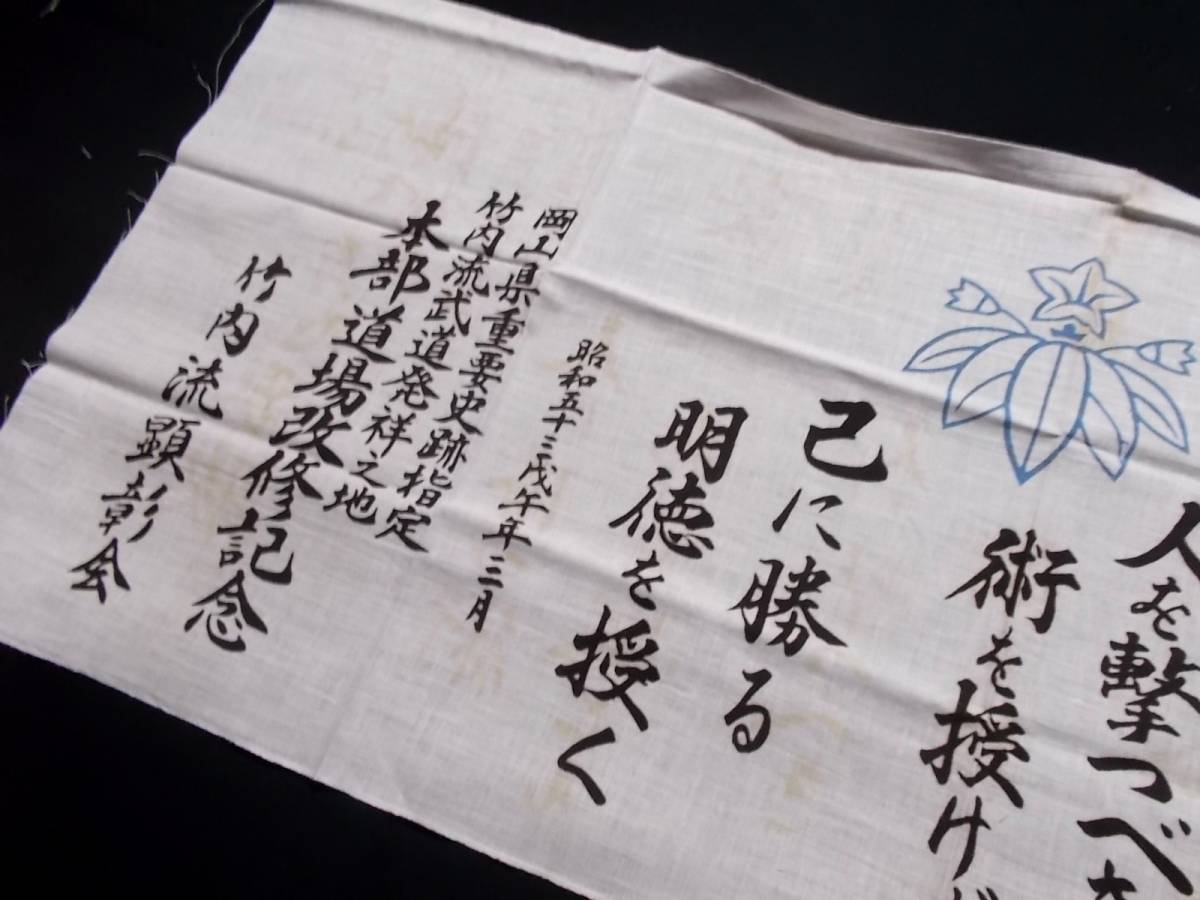 人を撃つべ
術を授け
己に勝る
明徳を授く
昭和五十三戊午年三月
岡山県重要史跡指定
竹内流武道発祥之地
本部道場改修記念
竹内流顕彰会